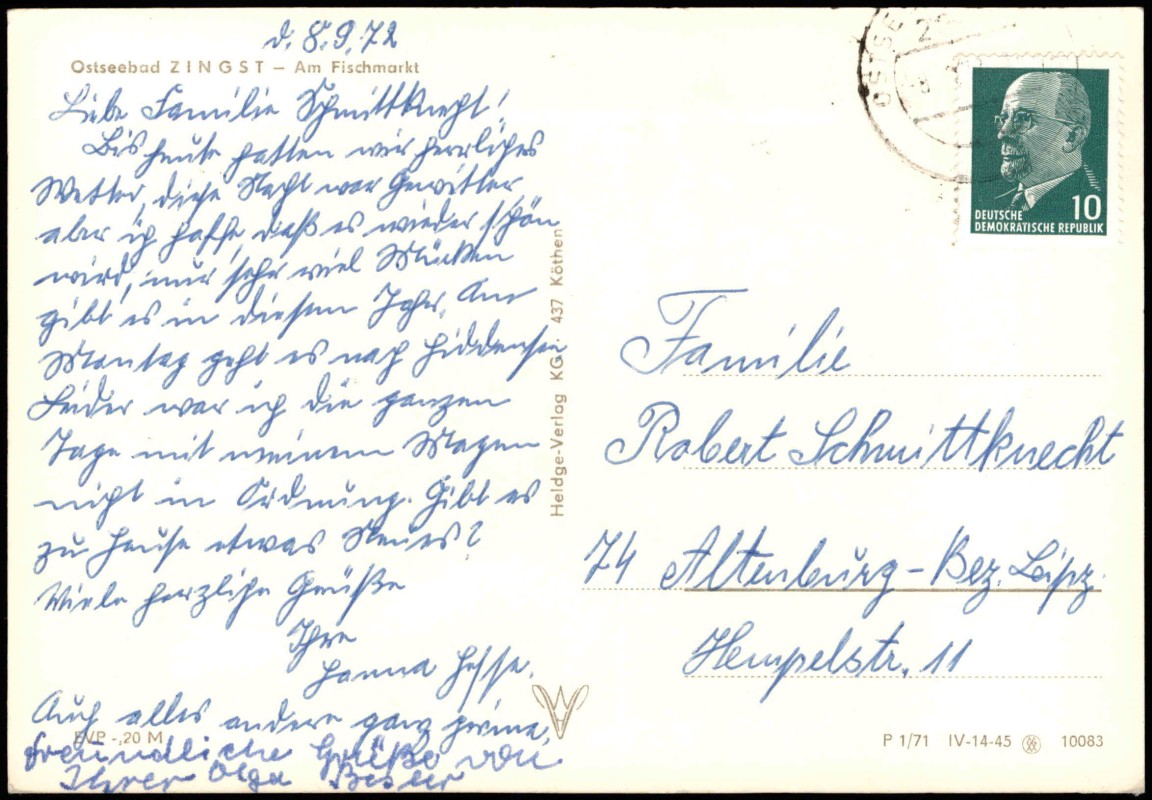 d. 8.9.72
Ostseebad ZINGST – Am Fischmarkt
Liebe Familie Schmittknecht!
Bis heute hatten wir herrliches
Wetter, diese Nacht war Gewitter
aber ich hoffe, daß es wieder schön
wird, nur sehr viel Mücken
gibt es in diesem Jahr. Am
Montag geht es nach Hiddensee
Leider war ich die ganzen
Tage mit meinem Magen
nicht in Ordnung. Gibt es
zu Hause etwas Neues?
Viele herzliche Grüße
Ihre
Hanna Hesse.
Auch alles andere ganz prima.
freundliche Grüße von
Ihrer Olga
EVP -,20 M
Heldge-Verlag KG · 437 Köthen
OSTSE
DEUTSCHE
DEMOKRATISCHE REPUBLIK
10
Familie
Robert Schmittknecht
74 Altenburg – Bez. Leipz.
Hempelstr. 11
P 1/71 IV-14-45 10083